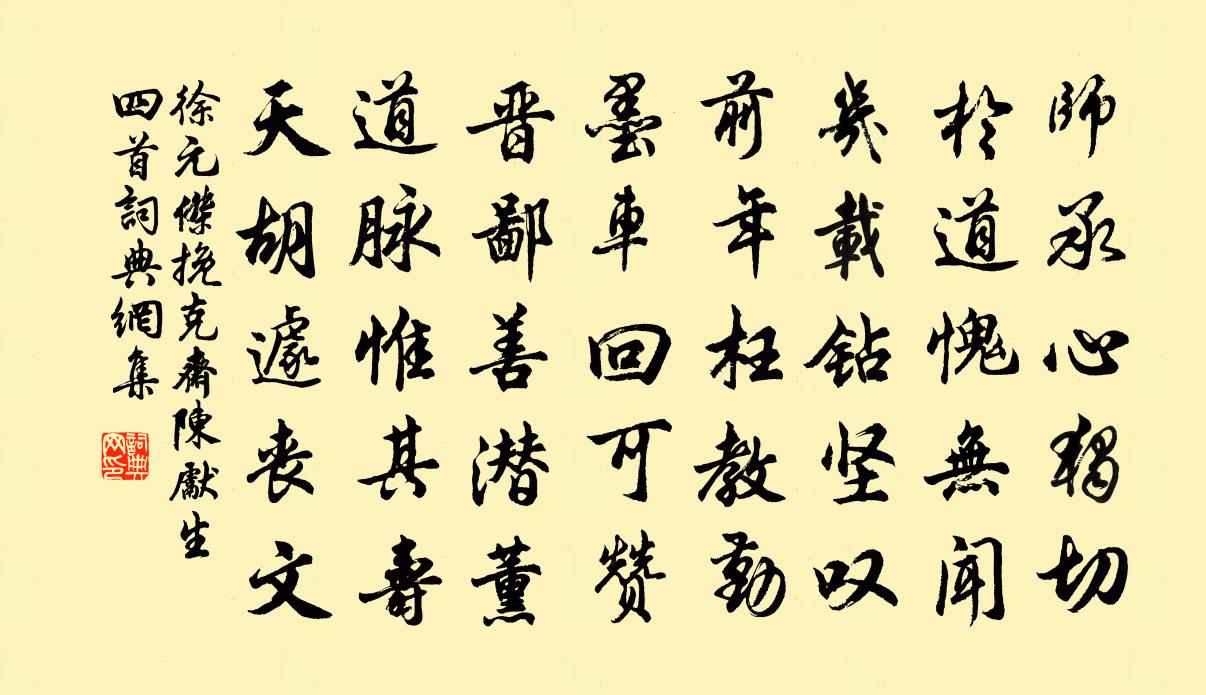 師承心獨切
於道愧無聞
幾載钻坚叹
前年枉教勤
墨車回可赞
晋鄙善潜薰
道脉惟其壽
天胡遽丧文
徐元傑挽克齋陳獻生
四首詞典網集
詞典
网印